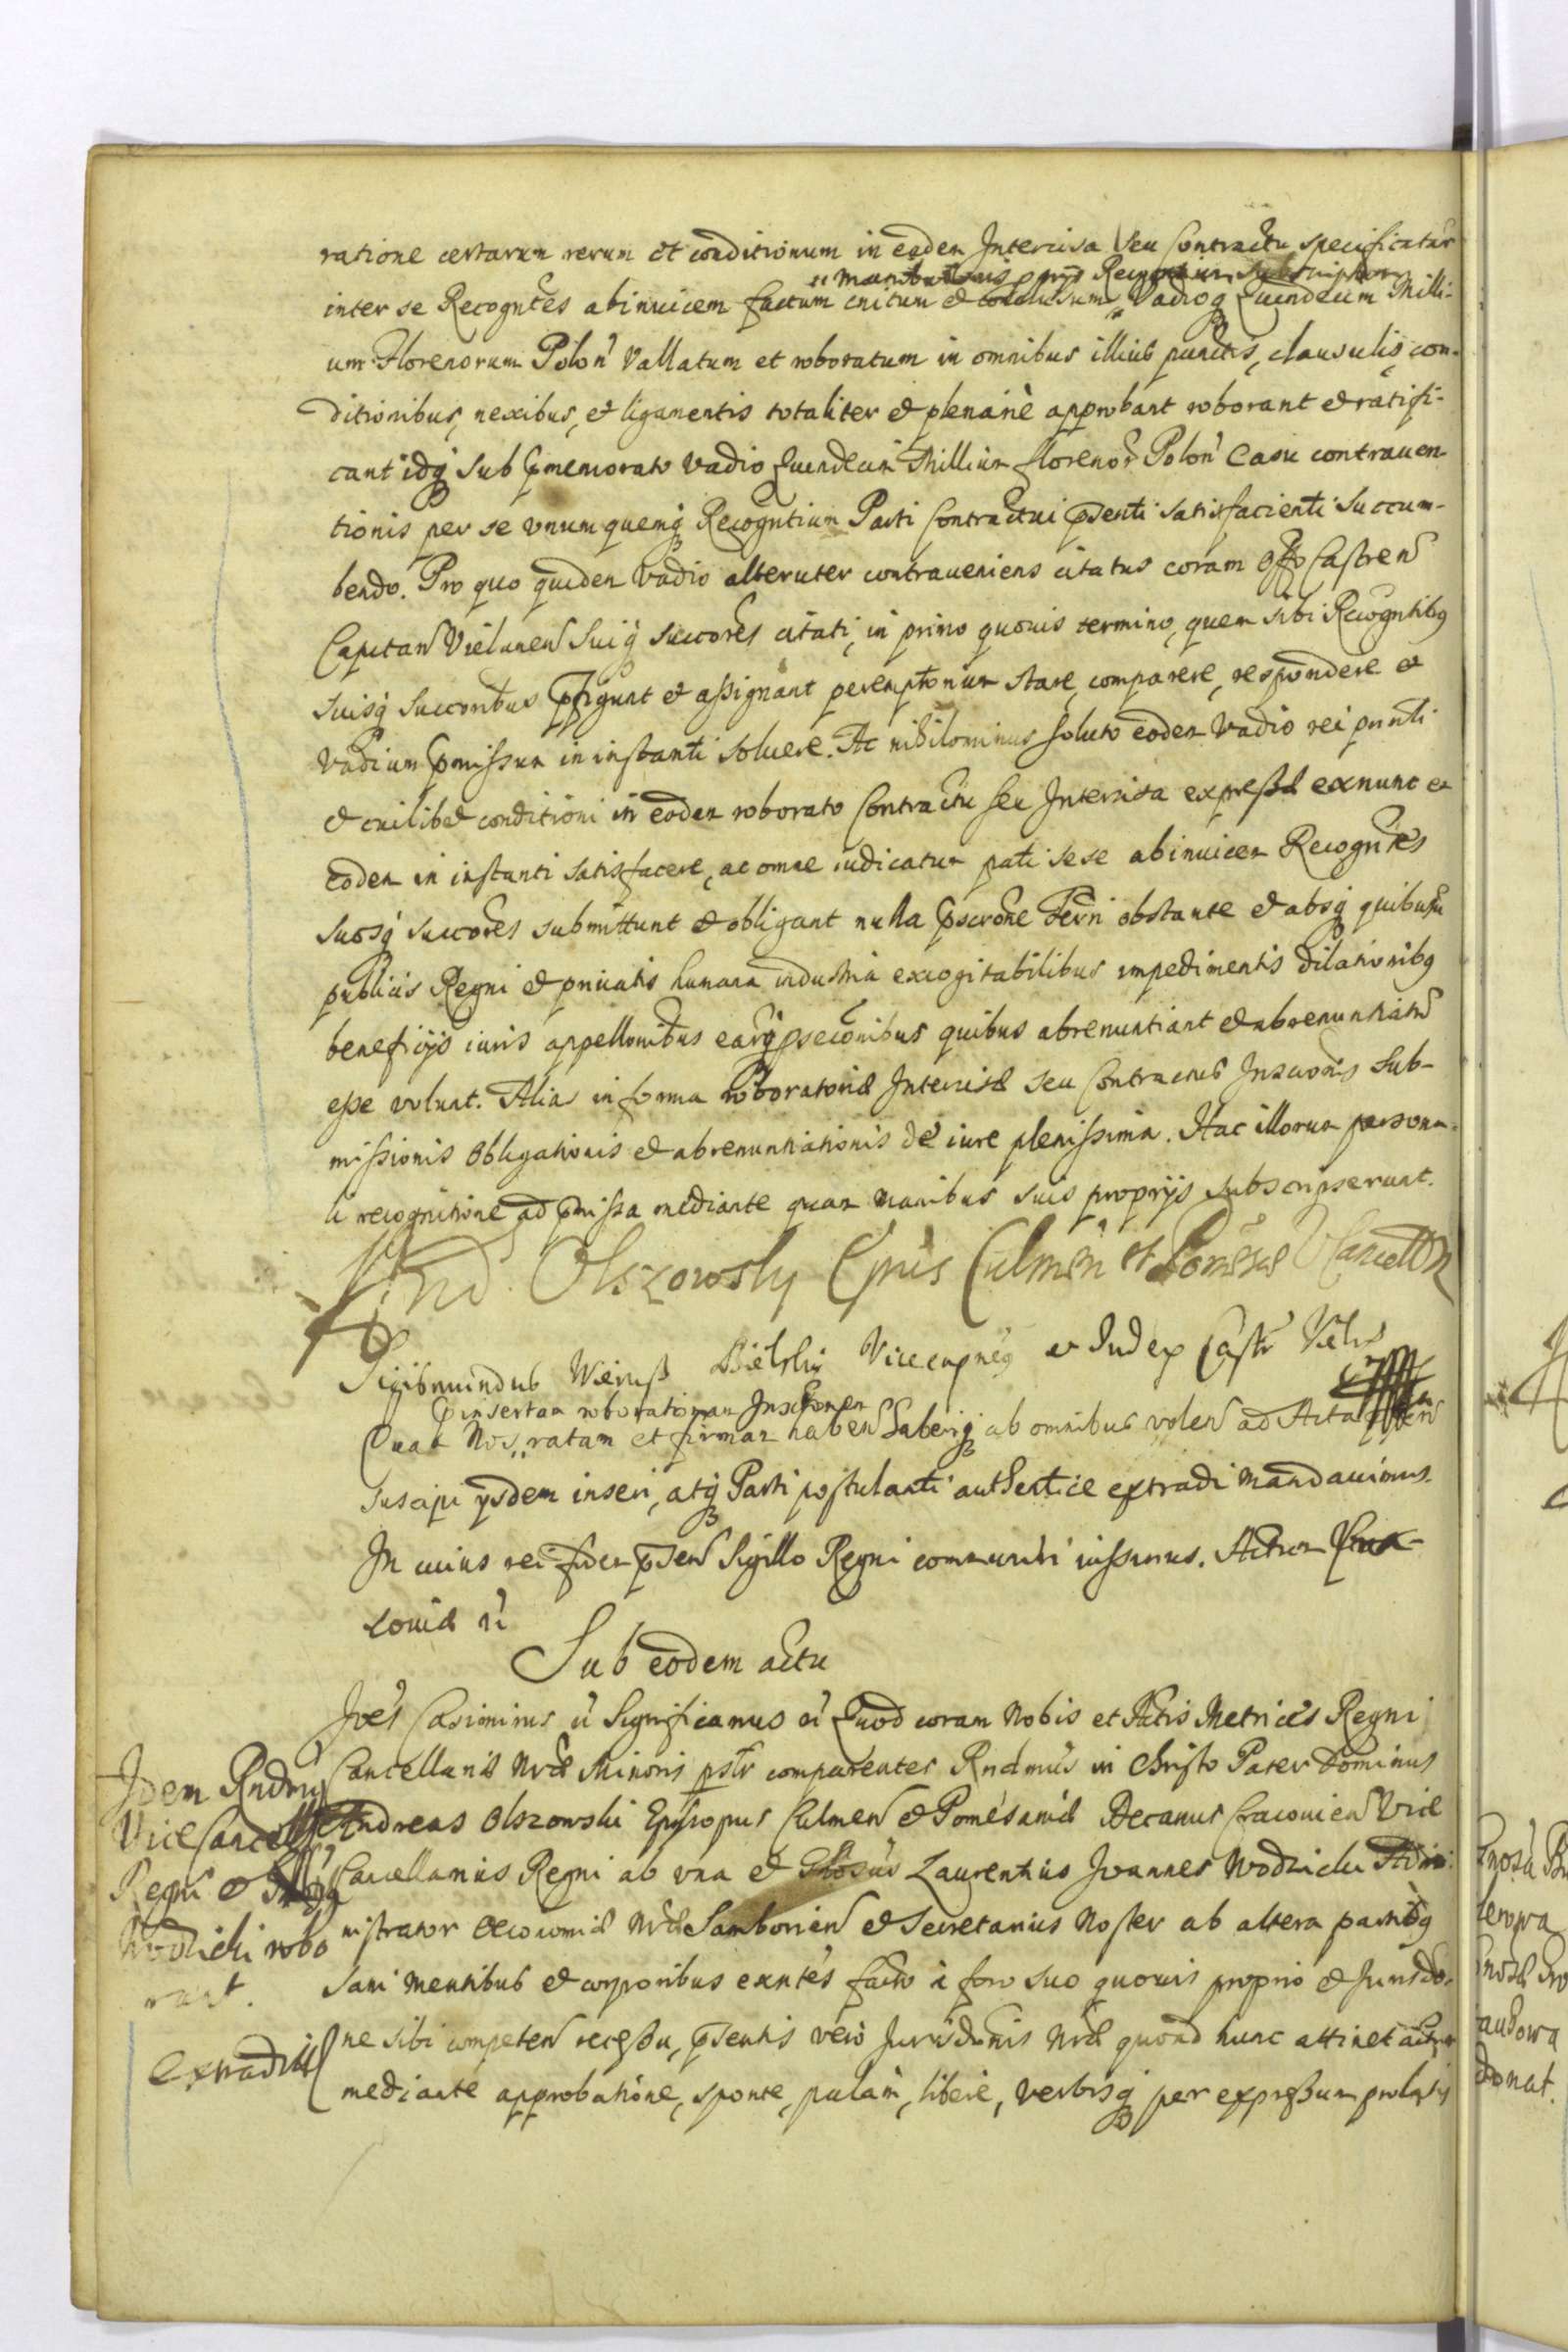 ratione certarum rerum et conditionum in eodem Intercisa seu Contractu specificatar
manibus suis pprijs Recogntium subscriptum
inter se Recogntes abinuicem factum initum et conclusum Vadioq Quindecim Milli-
um Florenorum Polon Vallatum et roboratum in omnibus illius punctis, clausulis, con-
ditionibus, nexibus, et ligamentis totaliter et plenarie approbant roborant et ratifi-
cant idq sub pmemorato vadio Quindecim Millium florenor Polon Casu contrauen
tionis per se vnumquemq Recogntium Parti Contractui psenti satisfacienti succum-
bendo. Pro quo quidem vadio alteruter contraueniens citatus coram Offo Castren
Capitan Vielunen suiq succores citati, in primo quouis termino, quem sibi Recogntibq
suisq succoribus pfigunt et assignant peremptorium stare, comparere, respondere et
Vadium pmissum in instanti soluere. Ac nihilominus soluto eodem Vadio rei pnnti
et cuilibet conditioni in eodem roborato Contractu seu Intercisa expressæ exnunc et
eodem in instanti satisfacere, ac omne iudicatum pati sese abinuicem Recogntes
suosq succores submittunt et obligant nulla pscrone terri obstante et absq quibusuis
publicis Regni et priuatis humana industria excogitabilibus impedimentis dilationibq
beneficijs iuris appellonibus earq psecõnibus quibus abrenuntiant et abrenuntiatũ
esse volunt. Alia in forma roboratoriæ Intercisæ seu Contractus Inscronis Sub-
missionis Obligationis et abrenuntiationis de iure plenissima. Hac illorum persona-
li recognitione ad pmissa mediante quam manibus suis proprijs subscripserunt.
And. Olszowsky Epus Culmen et Pomesae VCancell R
Sigismundus Wierusz Bielski Vicecapneq et Judex Castr Viel
pinsertam roboratoriam Inscronem
Quam Nos ratam et firmam haben haberiq ab omnibus volen ad Acta
suscipi ijsdem inseri, atq Parti postulanti authentice extradi mandauimus.
In cuius rei fidem psen Sigillo Regni communiri iussimus. Actum Cra-
couiæ ũ
Sub eodem actu
Joes Casimirus ũ Significamus ũ Quod coram Nobis et Actis Metrices Regni
Cancellariæ Nræ Minoris pstr comparentes Rndmus in Christo Pater Dominus
Andreas Olszowski Episcopus Culmen et Pomesaniæ Decanus Cracouien Vice
Cancellarius Regni ab vna et Gñosus Laurentius Joannes Wodzicki Admi
nistrator Oeconomiæ Nræ Samborien et Secretarius Noster ab altera partibq
sani mentibus et corporibus exntes facto a foro suo quouis proprio et Jurisdo
ne sibi competen recessu, psentis vero Jurisdonis Nræ quoad hunc attinet actum
mediante approbatione, sponte, palam, libere, verbisq per expressum prolatis
Idem Rndmus
Vice Cancell
Regni et
Wodzicki robo
rant.
Extradit